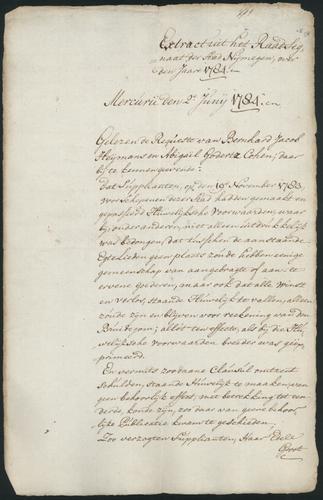 Extract uit het Raadsig,
naat der Stad Nijmegen, over
den Jaare 1784.
Mercurii den 2e Junij 1784.
Gelezen de Requeste van Bernhard Jacob
Heijmans en Abigael Cohen, daar
bij te kennen gevende:
Dat Supplianten, op den 19e November 1783
voor Schepenen dezer Stad hadden gemaakt en
gepasseerd Huwelijksche Voorwaarden, waar
bij onder anderen, niet alleen uitdrukkelijk
was bedongen, dat tusschen de aanstaande
Echtelieden geen plaats zoude hebben eenige
gemeenschap van aangebragte of aan te
ervene goederen, maar ook dat alle Winst
en verlos, staande Huwelijk te vallen, alleen
zoude zijn en blijven voor reekening van den
Bruidegom; alles ten effecte, als bij die Hu,
welijksche voorwaarden breeder was geëx,
primeerd.
En vermits zoodaane Clausul omtrent
Schulden, staande Huwelijk te maaken, van
geen behoorlijk effect, met betrekking tot
derde, konde zijn, zo daar van geene behoor,
lijke Publicatie kwam te geschieden;
Zoo verzogten Supplianten, Haar Edele